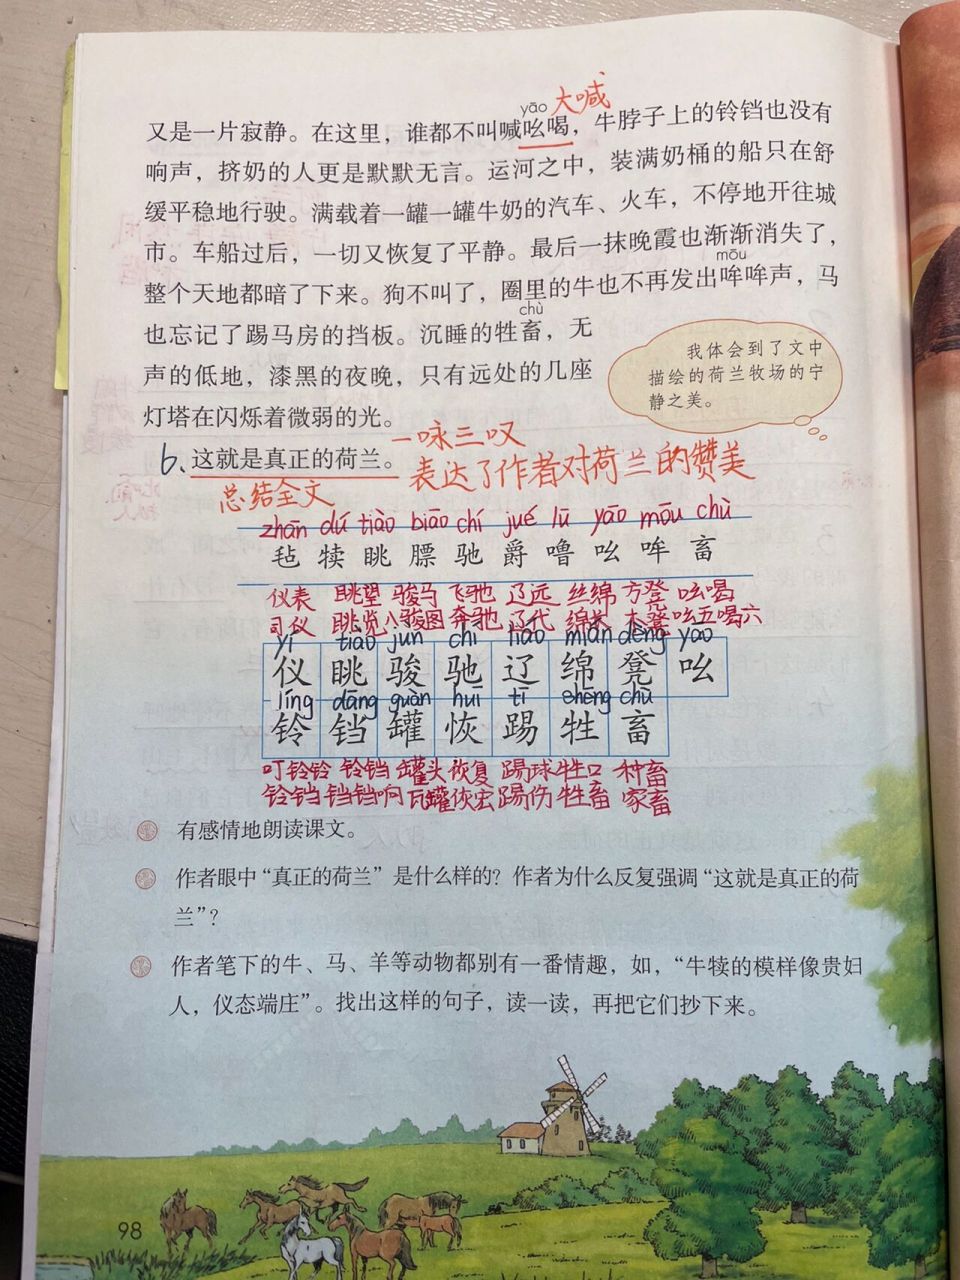 yāo 大喊
又是一片寂静。在这里，谁都不叫喊吆喝，牛脖子上的铃铛也没有
响声，挤奶的人更是默默无言。运河之中，装满奶桶的船只在舒
缓平稳地行驶。满载着一罐一罐牛奶的汽车、火车，不停地开往城
市。车船过后，一切又恢复了平静。最后一抹晚霞也渐渐消失了，
mōu
整个天地都暗了下来。狗不叫了，圈里的牛也不再发出哞哞声，马
chù
也忘记了踢马房的挡板。沉睡的牲畜，无
声的低地，漆黑的夜晚，只有远处的几座
灯塔在闪烁着微弱的光。
我体会到了文中
描绘的荷兰牧场的宁
静之美。
6、这就是真正的荷兰。
一咏三叹
表达了作者对荷兰的赞美
总结全文
zhān dú tiào biāo chí jué lū yāo mōu chù
毡 犊 眺 膘 驰 爵 噜 吆 哞 畜
仪表 眺望 骏马 飞驰 辽远 丝绵 方凳 吆喝
司仪 眺览 八骏图 奔驰 辽代 绵长 木凳 吆五喝六
yí tiào jùn chí liáo mián dèng yāo
仪 眺 骏 驰 辽 绵 凳 吆
líng dāng guàn huī tī shēng chù
铃 铛 罐 恢 踢 牲 畜
叮铃铃 铃铛 罐头 恢复 踢球 牲口 种畜
铃铛 铛铛响 瓦罐 恢宏 踢伤 牲畜 家畜
有感情地朗读课文。
作者眼中“真正的荷兰”是什么样的？作者为什么反复强调“这就是真正的荷
兰”？
作者笔下的牛、马、羊等动物都别有一番情趣，如，“牛犊的模样像贵妇
人，仪态端庄”。找出这样的句子，读一读，再把它们抄下来。
98